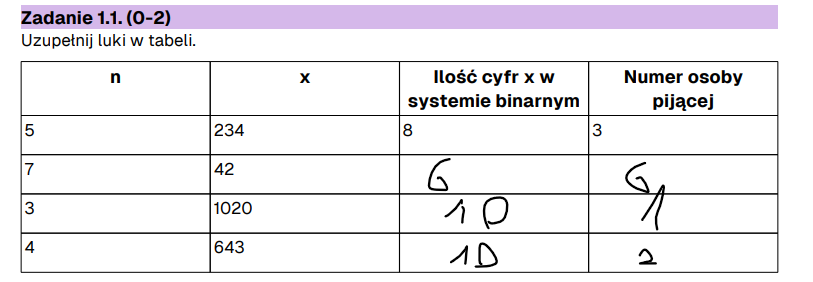 Zadanie 1.1. (0-2)
Uzupełnij luki w tabeli.
n x Ilość cyfr x w systemie binarnym Numer osoby pijącej
5 234 8 3
7 42 6 6
3 1020 10 1
4 643 10 2